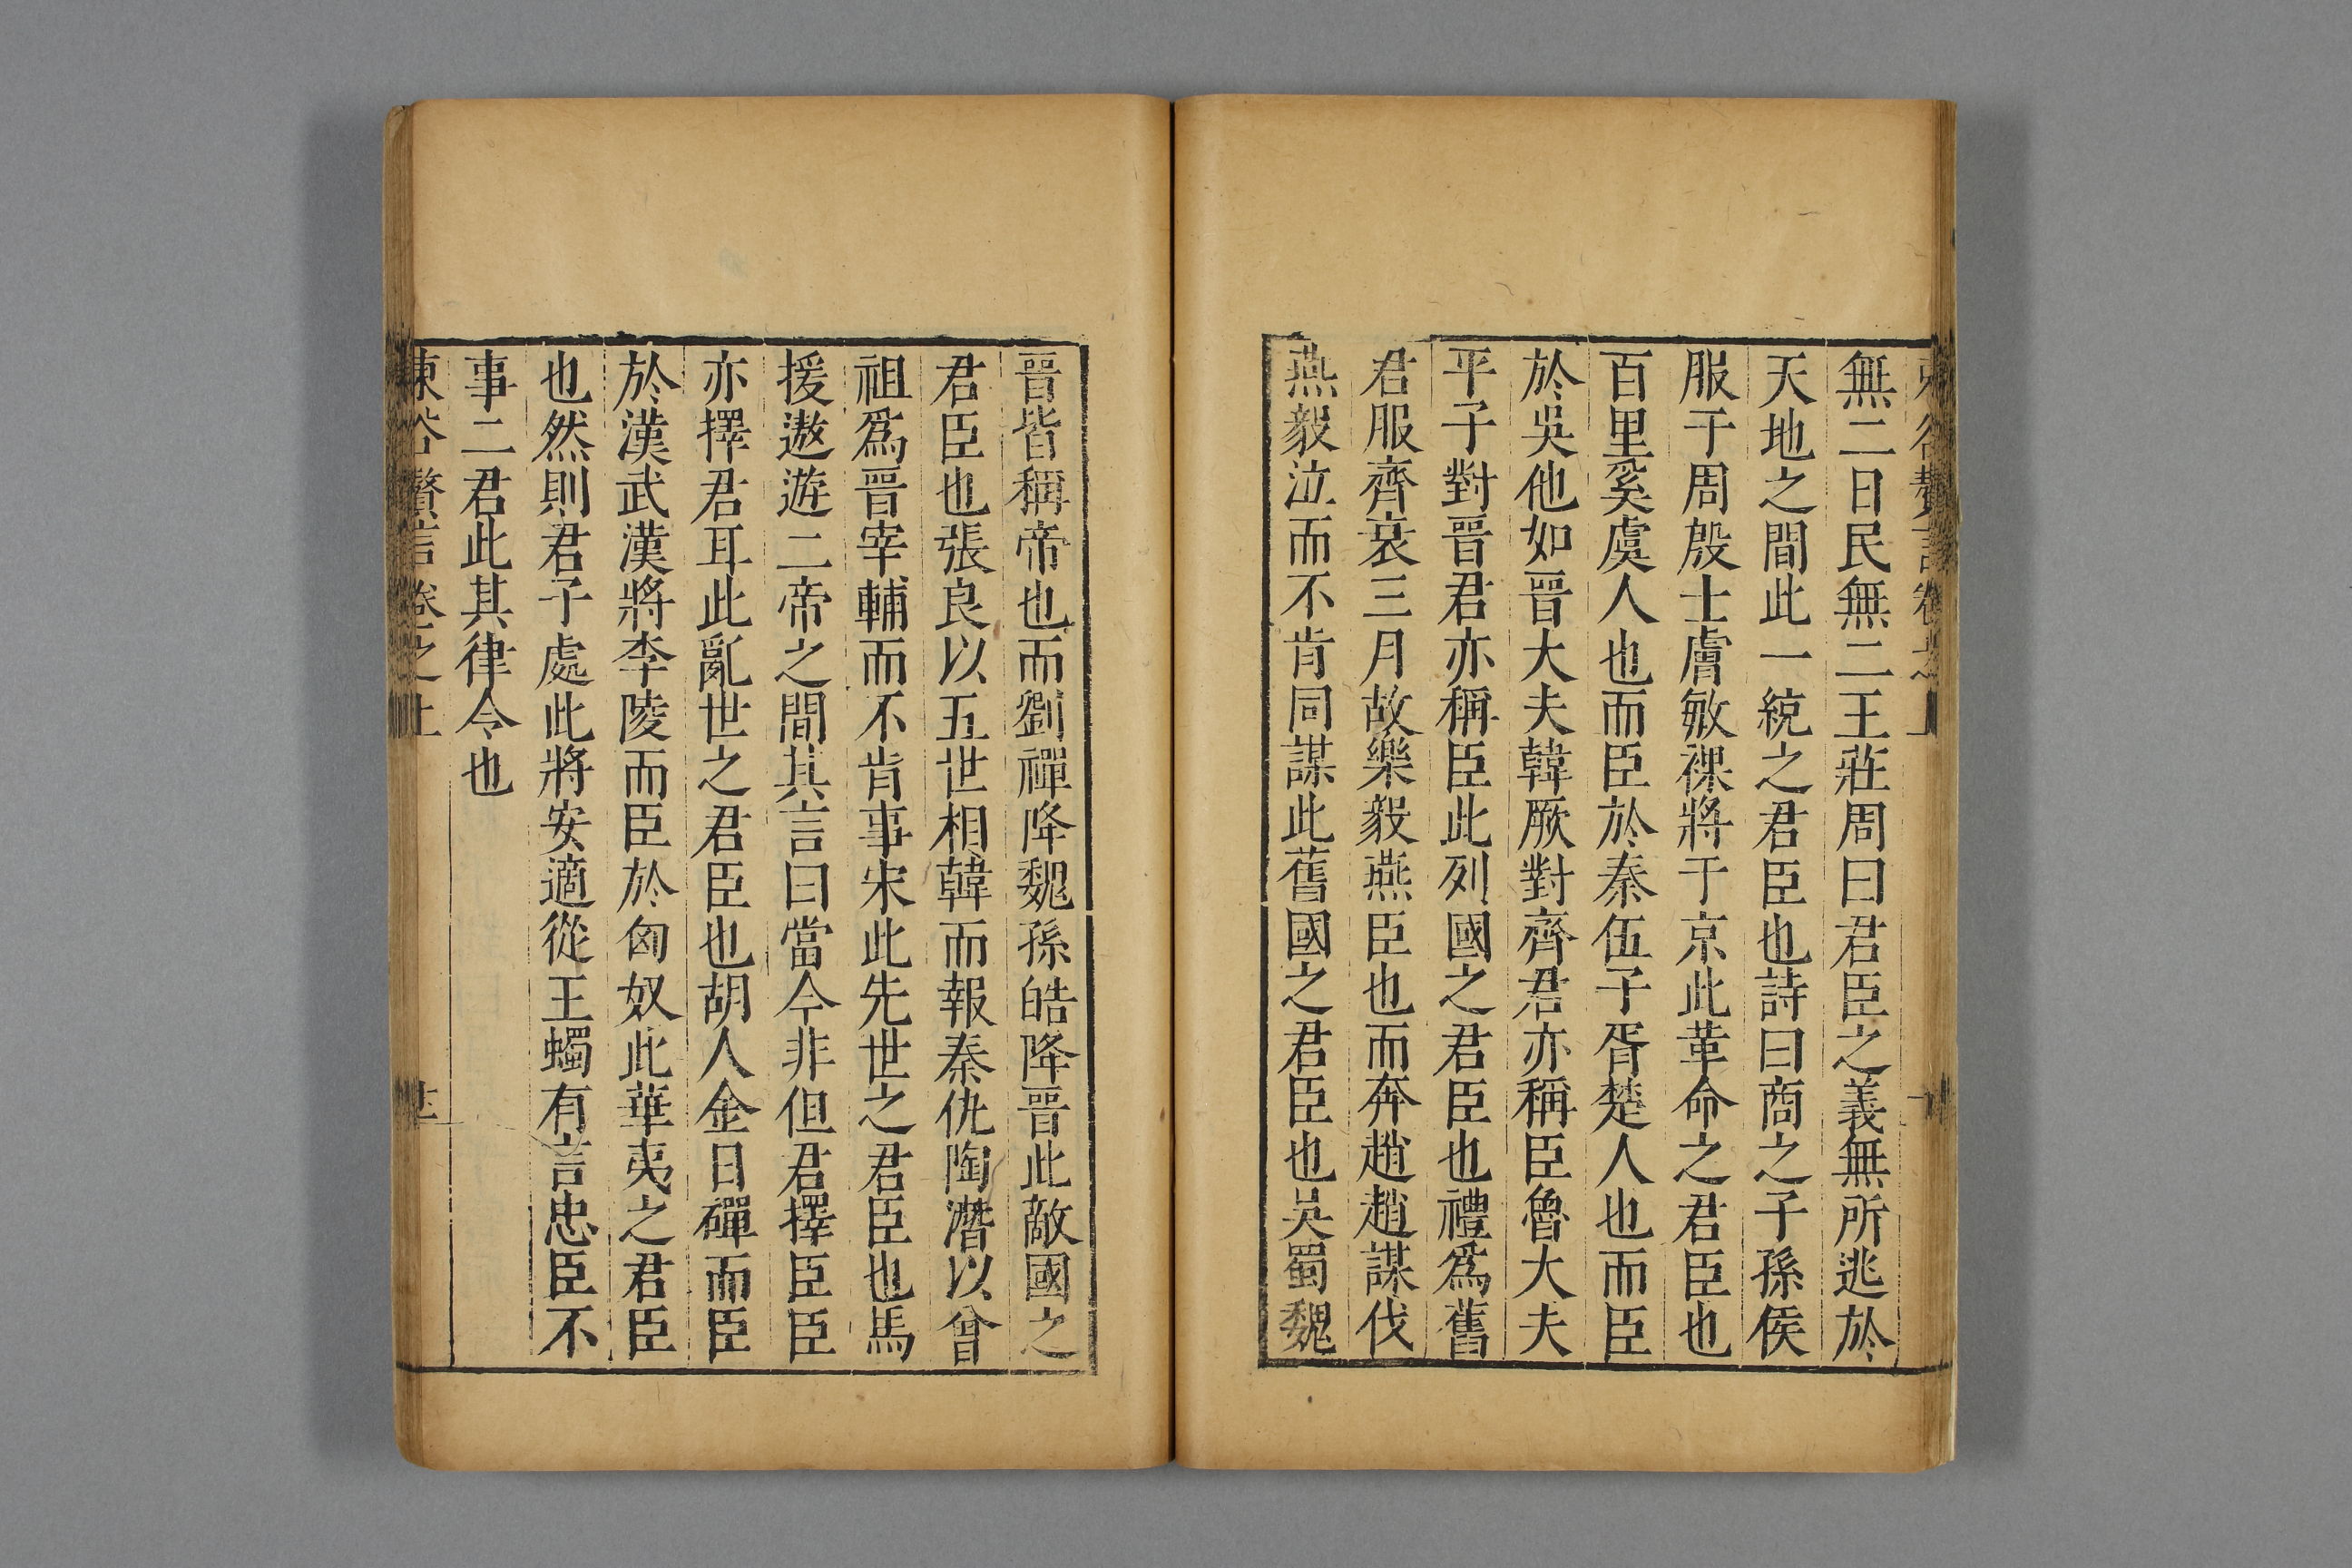 無二日民無二王莊周曰君臣之義無所逃於
天地之間此一統之君臣也詩曰商之子孫侯
服于周殷士膚敏祼將于京此革命之君臣也
百里奚虞人也而臣於秦伍子胥楚人也而臣
於吳他如晉大夫韓厥對齊君亦稱臣魯大夫
平子對晉君亦稱臣此列國之君臣也禮爲舊
君服齊衰三月故樂毅燕臣也而奔趙趙謀伐
燕毅泣而不肯同謀此舊國之君臣也吳蜀魏
晉皆稱帝也而劉禪降魏孫皓降晉此敵國之
君臣也張良以五世相韓而報秦仇陶潛以曾
祖爲晉宰輔而不肯事宋此先世之君臣也馬
援遨遊二帝之間其言曰當今非但君擇臣臣
亦擇君耳此亂世之君臣也胡人金日磾而臣
於漢武漢將李陵而臣於匈奴此華夷之君臣
也然則君子處此將安適從王蠋有言忠臣不
事二君此其律令也
東谷贅言卷之上